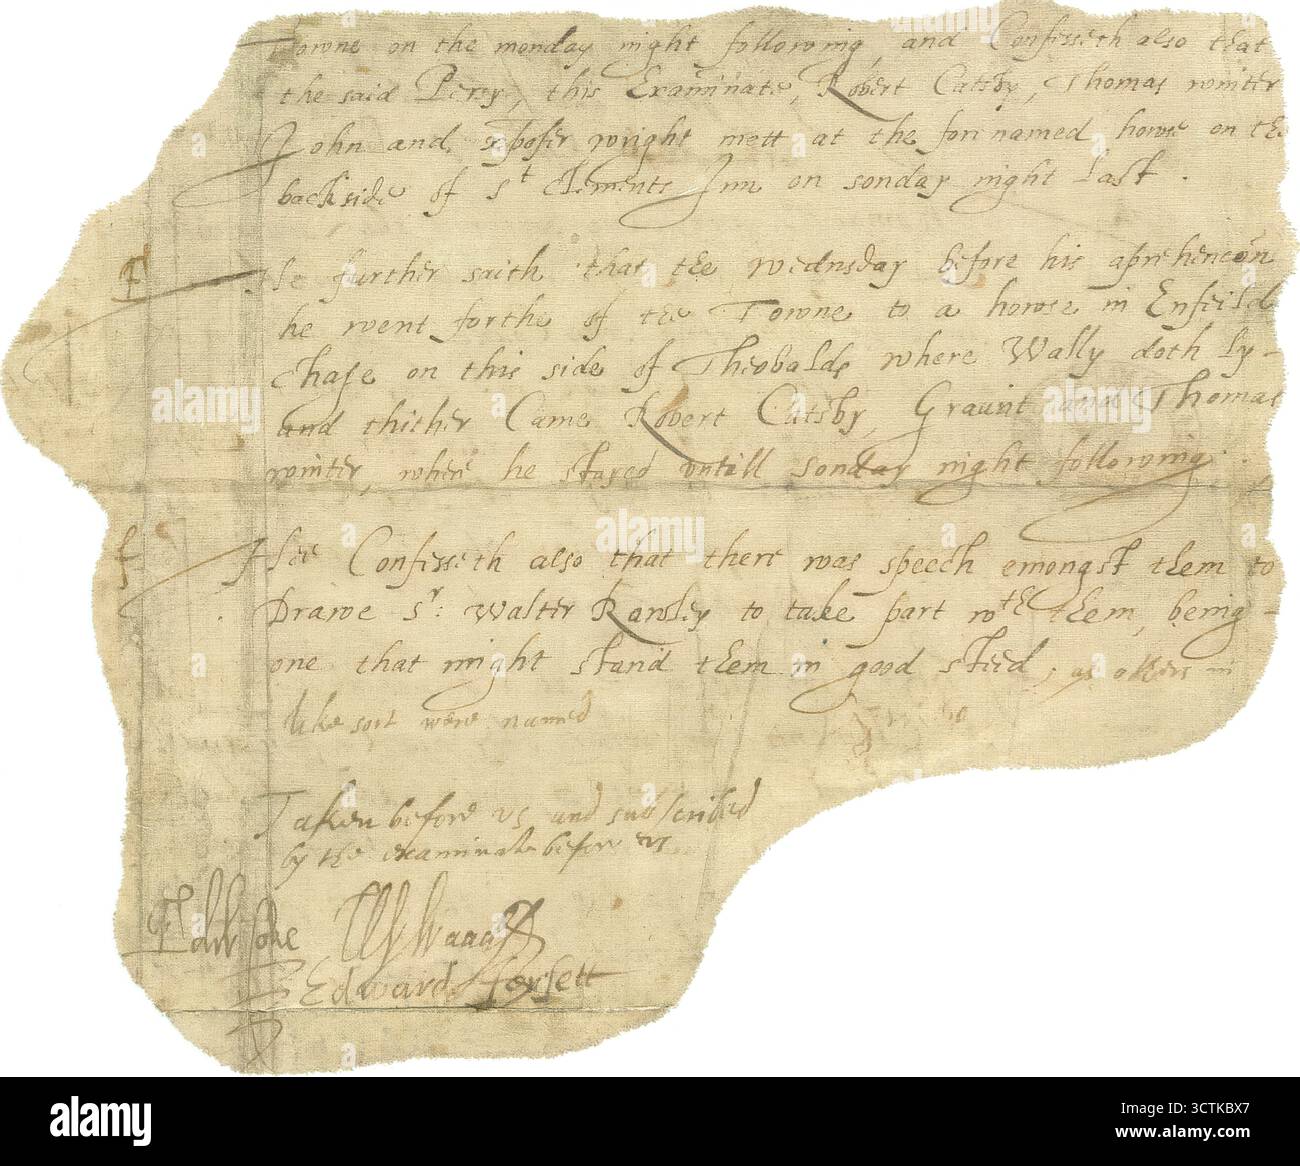 Towne on the monday night following, and Confesseth also that
the said Percy, this Examinate, Robert Catsby, Thomas winter
John and xpofer wright mett at the forenamed howse on the
backside of St Clements Inn on sonday night last.
F
He further saith that the wednsday before his aprehencon
he went forthe of the Towne to a howse in Enfeild
Chase on this side of Theobalds where Wally doth ly-
and thither Came Robert Catsby, Graunt and Thomas
winter, where he stayed vntill sonday night following.
f
Hee Confesseth also that there was speech emongst them to
Drawe Sr: Walter Rawley to take part wth them, being
one that might stand them in good steed, as others in
like sort were named
Taken before us and subscribed
by the examinate before us
Edw Coke W Waad
Edward Forsett
alamy
Image ID: 3CTKBX7
www.alamy.com